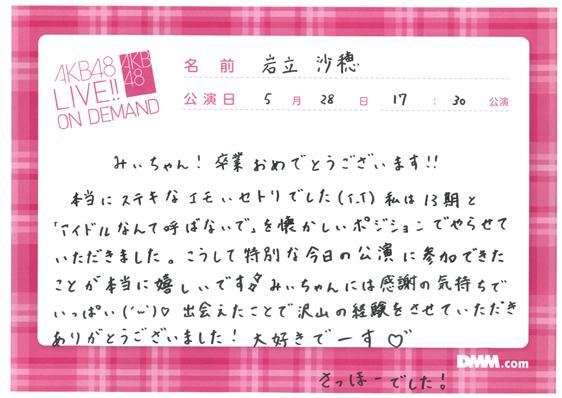 AKB48
LIVE!!
ON DEMAND
AKB
48
名前 岩立 沙穂
公演日 5月28日 17:30 公演
みぃちゃん! 卒業おめでとうございます!!
本当にステキなエモいセトリでした(T.T) 私は13期と
「アイドルなんて呼ばないで」を懐かしいポジションでやらせて
いただきました。こうして特別な今日の公演に参加できた
ことが本当に嬉しいです みぃちゃんには感謝の気持ちで
いっぱい('ω')♡ 出会えたことで沢山の経験をさせていただき
ありがとうございました! 大好きでーす♡
DMM.com
さっほーでした!